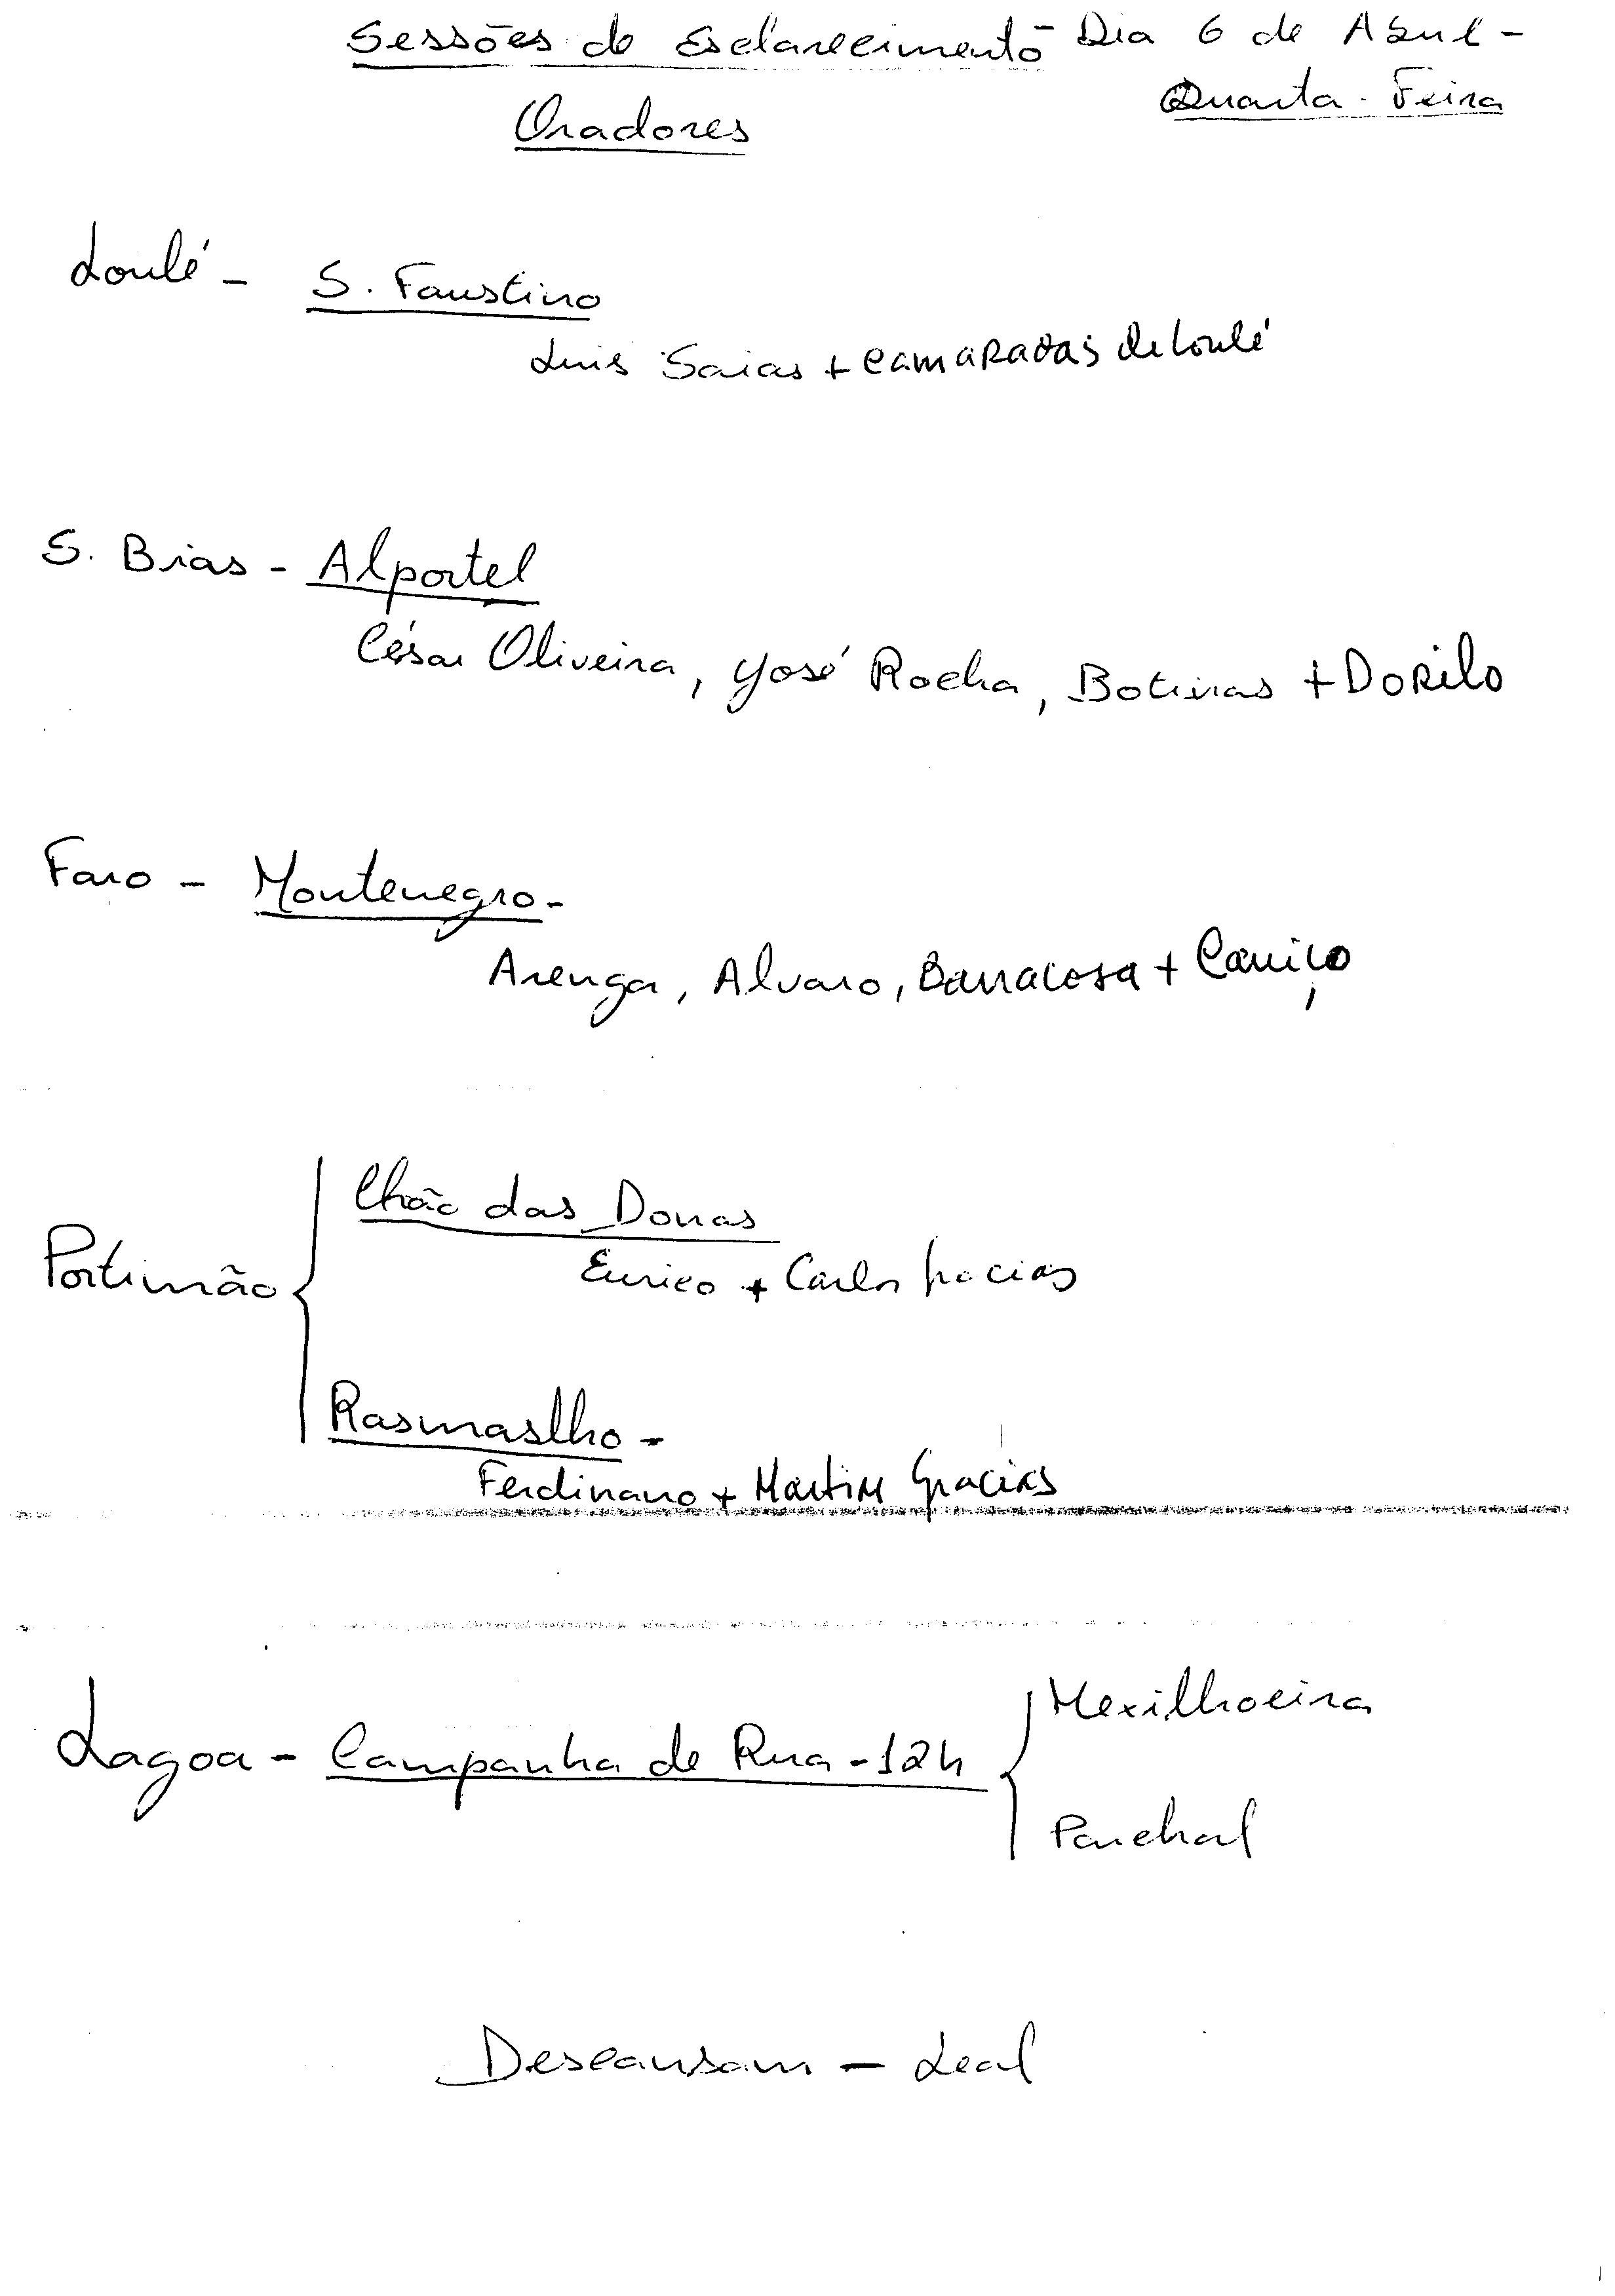 Sessões de Esclarecimento - Dia 6 de Abril -
Quarta-Feira
Oradores
Loulé - S. Faustino
Luis Saias + camaradas de Loulé
S. Bras - Alportel
César Oliveira, José Rocha, Botinas + Dorilo
Faro - Montenegro -
Arenga, Alvaro, Barracosa + Caniço
Portimão
Chão das Donas
Eurico + Carlos Gracias
Rasmaslho -
Ferdinano + Martim Gracias
Lagoa - Campanha de Rua - 12h
Mexilhoeira
Parchal
Descansam - Leal